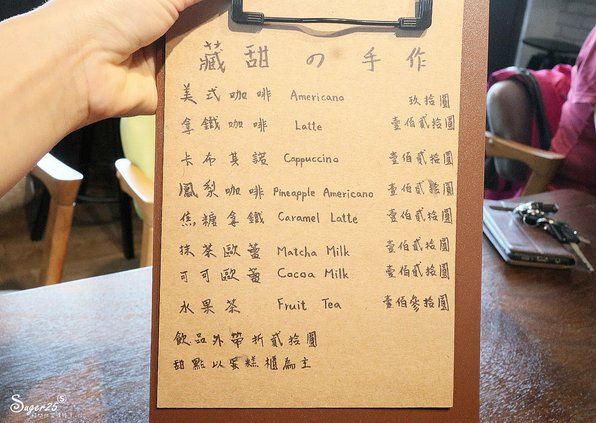 藏甜の手作
美式咖啡 Americano 玖拾圓
拿鐵咖啡 Latte 壹佰貳拾圓
卡布其諾 Cappuccino 壹佰貳拾圓
鳳梨咖啡 Pineapple Americano 壹佰貳拾圓
焦糖拿鐵 Caramel Latte 壹佰貳拾圓
抹茶歐蕾 Matcha Milk 壹佰貳拾圓
可可歐蕾 Cocoa Milk 壹佰貳拾圓
水果茶 Fruit Tea 壹佰參拾圓
飲品外帶折貳拾圓
甜點以蛋糕櫃為主
Suger25